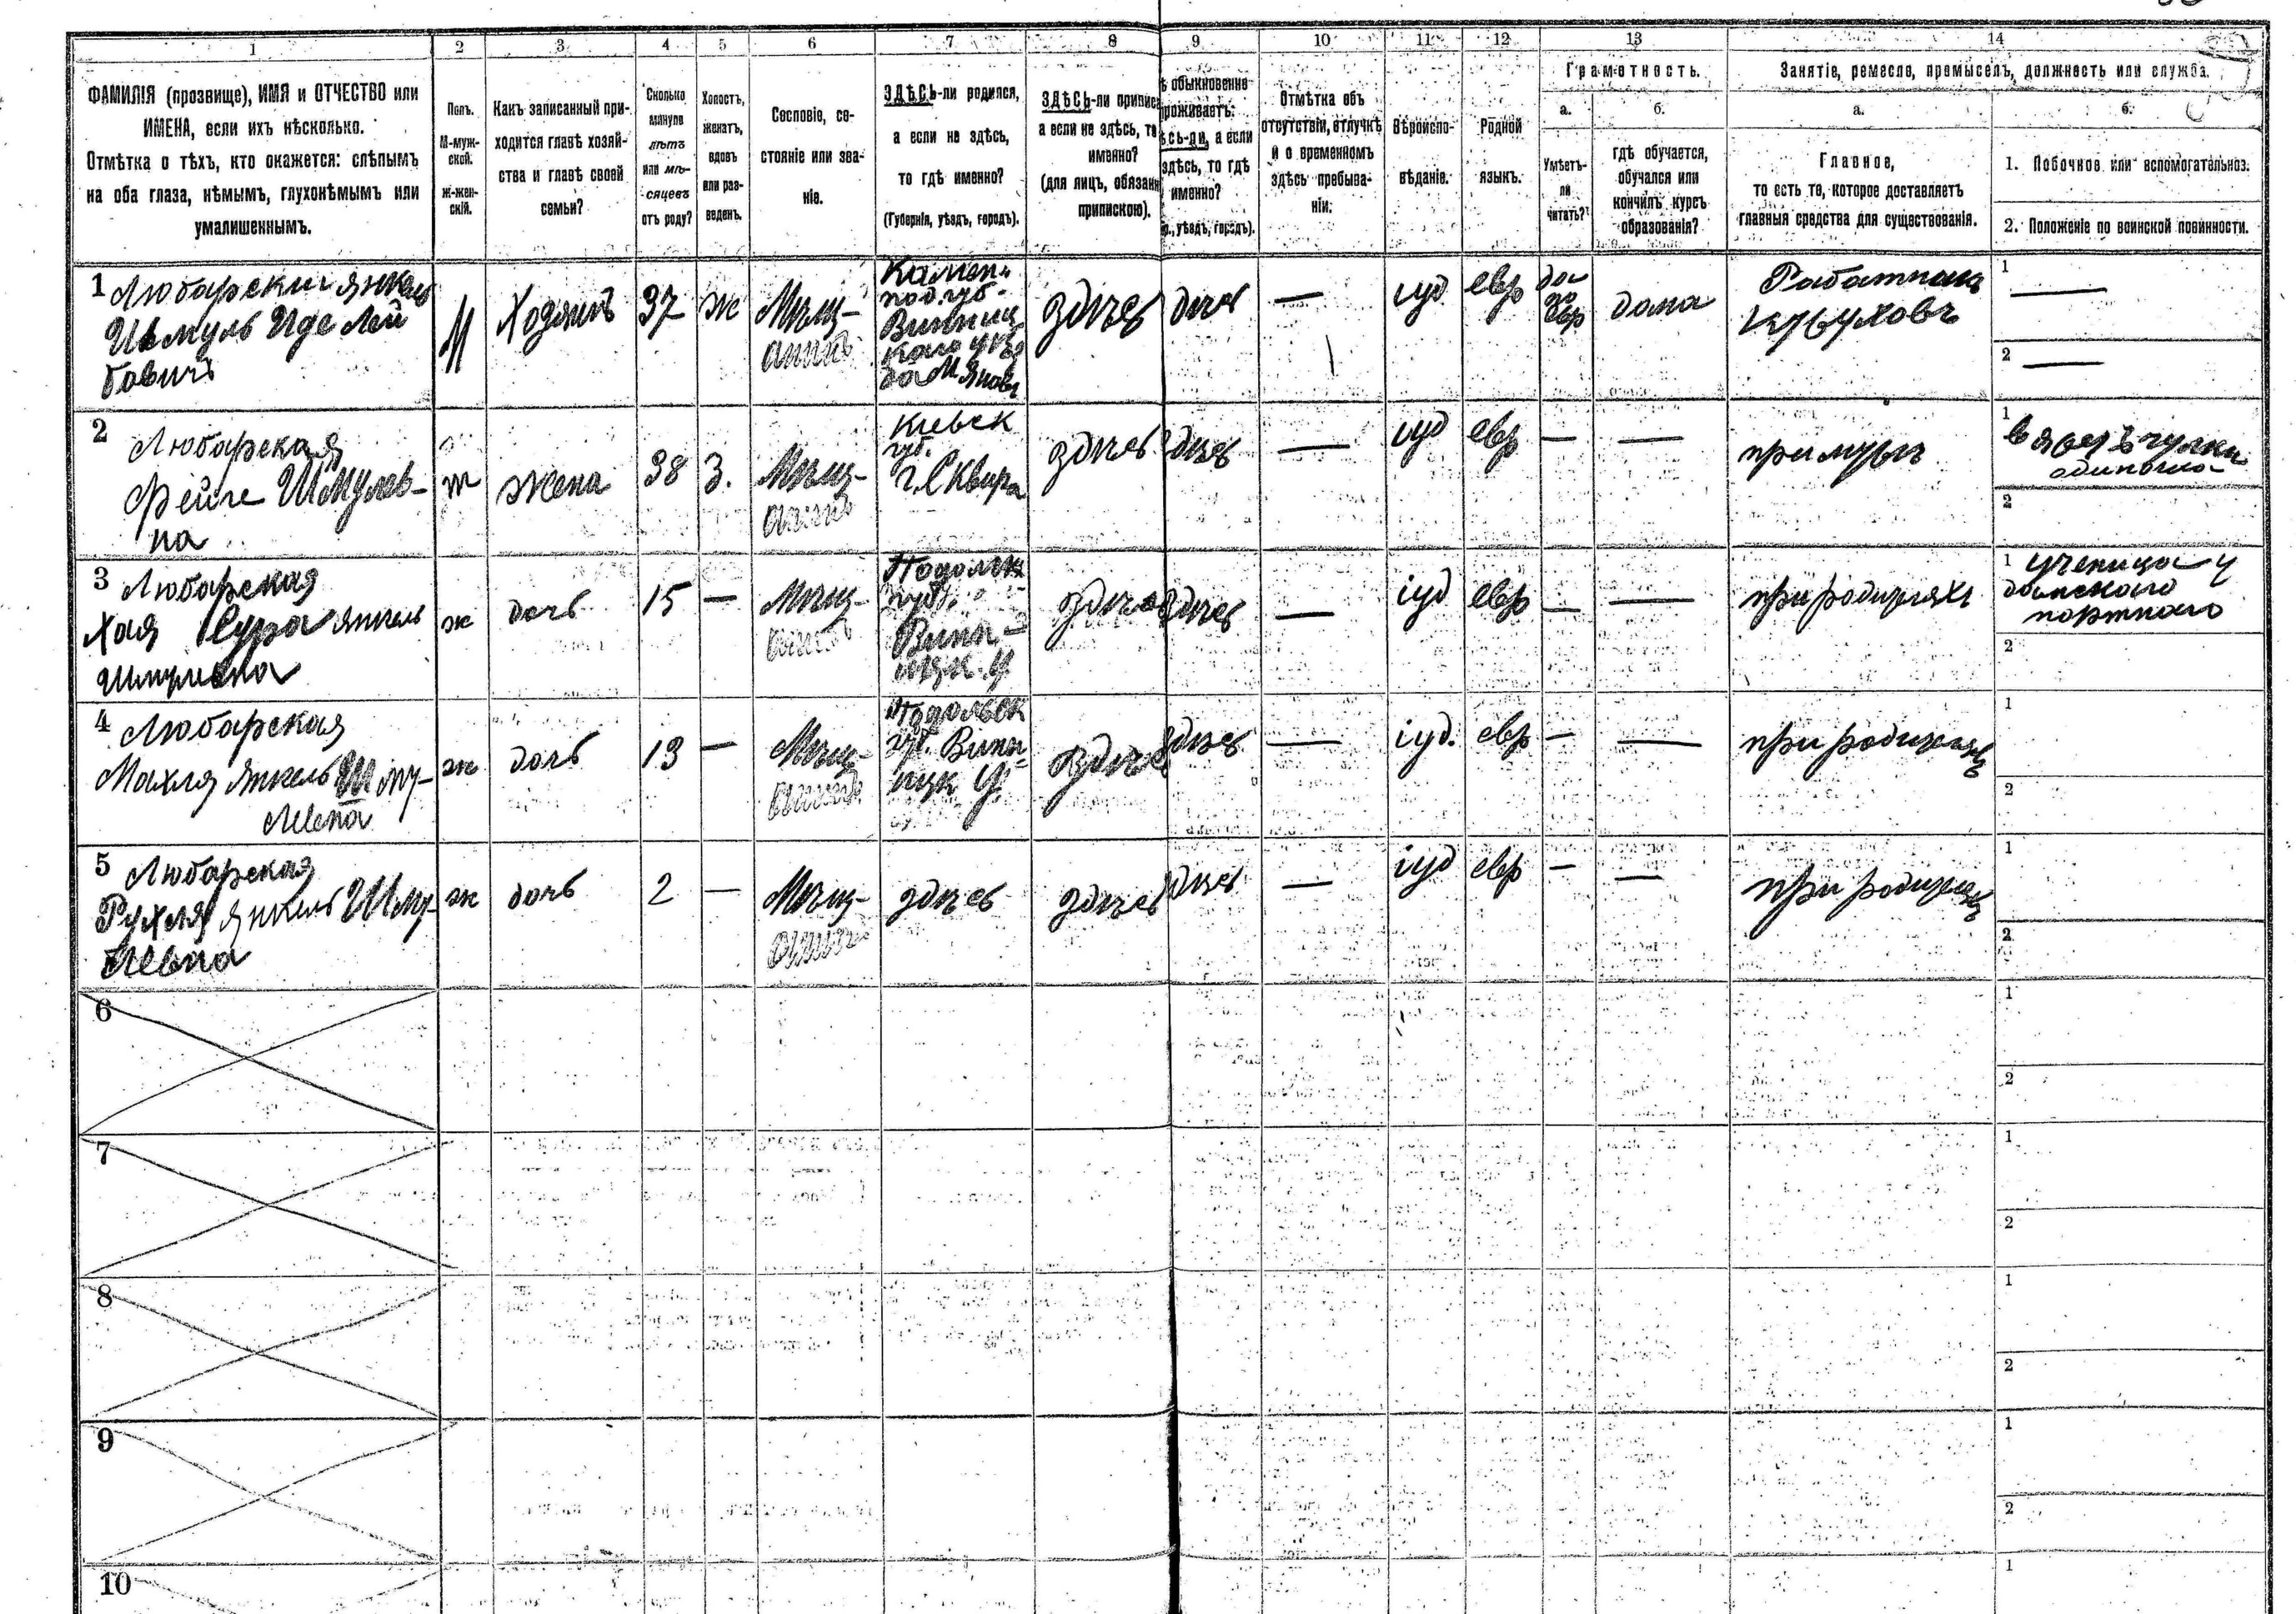 1 2 3 4 5 6 7 8 9 10 11 12 13 14
ФАМИЛІЯ (прозвище), ИМЯ и ОТЧЕСТВО или
ИМЕНА, если ихъ нѣсколько.
Отмѣтка о тѣхъ, кто окажется: слѣпымъ
на оба глаза, нѣмымъ, глухонѣмымъ или
умалишеннымъ.
Полъ.
М-муж-
ской.
Ж-жен-
скій.
Какъ записанный при-
ходится главѣ хозяй-
ства и главѣ своей
семьи?
Сколько
минуло
лѣтъ
или мѣ-
сяцевъ
отъ роду?
Холостъ,
женатъ,
вдовъ
или раз-
веденъ.
Сословіе, со-
стояніе или зва-
ніе.
ЗДѢСЬ-ли родился,
а если не здѣсь,
то гдѣ именно?
(Губернія, уѣздъ, городъ).
ЗДѢСЬ-ли припис
а если не здѣсь, то
именно?
(для лицъ, обязан
припискою).
ѣ обыкновенно
проживаетъ:
ѣсь-ли, а если
здѣсь, то гдѣ
именно?
р., уѣздъ, городъ).
Отмѣтка объ
отсутствіи, отлучкѣ
и о временномъ
здѣсь пребыва-
ніи.
Вѣроиспо-
вѣданіе.
Родной
языкъ.
Грамотность.
а.
Умѣетъ-
ли
читать?
б.
гдѣ обучается,
обучался или
кончилъ курсъ
образованія?
Занятіе, ремесло, промыселъ, должность или служба.
а.
Главное,
то есть то, которое доставляетъ
главныя средства для существованія.
б.
1. Побочное или вспомогательное.
2. Положеніе по воинской повинности.
1 Любарский Янкель
Шмуль Иде Лей
бовичъ
М
Ходяинъ
37
ж
Мѣщ-
анинъ
Камен.
под. губ.
Винниц
кого уѣз
да М Янов
здѣсь
здѣсь
—
іуд
евр
да
по
евр
дома
1 —
2 —
2 Любарская
Фейге Шмулев-
на
ж
жена
38
З.
Мѣщ-
Киевск
губ.
г. Сквира
здѣсь
здѣсь
—
іуд
евр
—
—
при мужѣ
1
2
3 Любарская
Хая Сура Янкель
Шмулевна
ж
дочь
15
—
Мѣщ-
Подольск
губ.
Винн-
ицк. у.
здѣсь
здѣсь
—
іуд
евр
—
—
при родителяхъ
1 ученица у
дамского
портного
2
4 Любарская
Махля Янкель Шму-
левна
ж
дочь
13
—
Мѣщ-
Подольск
губ. Винн-
ицк у.
здѣсь
здѣсь
—
іуд.
евр
—
—
при родителяхъ
1
2
5 Любарская
Рухля Янкель Шму-
левна
ж
дочь
2
—
Мѣщ-
здѣсь
здѣсь
здѣсь
—
іуд
евр
—
—
при родителяхъ
1
2
6
1
2
7
1
2
8
1
2
9
1
2
10
1